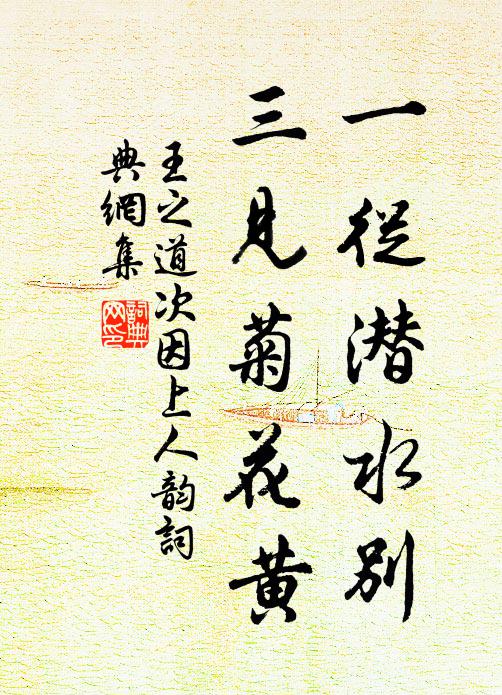 一從潜水別
三見菊花黄
王之道次因上人韵詞
典網集
詞典网印